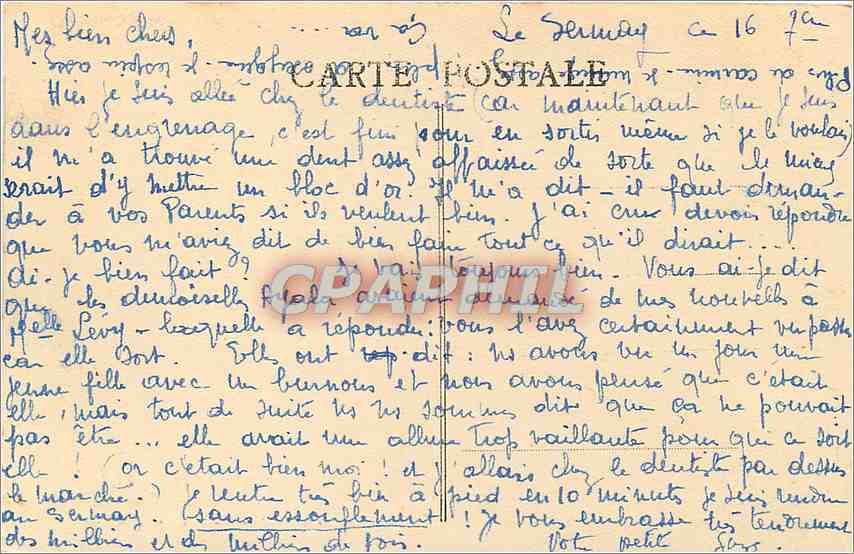 Mes bien chers, Ça va ... Le Sermay ce 16 9bre
CARTE POSTALE
Hier je suis allée chez le dentiste (car maintenant que je suis
dans l'engrenage, c'est fini pour en sortir même si je le voulais)
il m'a trouvé une dent assez affaissée de sorte que le mieux
serait d'y mettre un bloc d'or. Il m'a dit - il faut deman-
der à vos Parents si ils veulent bien. J'ai cru devoir répondre
que vous m'aviez dit de bien faire tout ce qu'il dirait ...
ai-je bien fait ? toujours bien. Vous ai-je dit
que les demoiselles Ayala avaient demandé de mes nouvelles à
Melle Lévy - laquelle a répondu : vous l'avez certainement vu passer
car elle sort. Elles ont dit : ns avons vu un jour une
jeune fille avec un burnous et nous avons pensé que c'était
elle, mais tout de suite ns ns sommes dit que ça ne pouvait
pas être ... elle avait une allure trop vaillante pour que ce soit
elle ! (or c'était bien moi ! et j'allais chez le dentiste par dessus
le marché.) je rentre très bien à pied en 10 minutes je suis rendue
au Sermay. (sans essouflement) ! Je vous embrasse très tendrement
des milliers et des milliers de fois. Votre petite
CPAPHIL